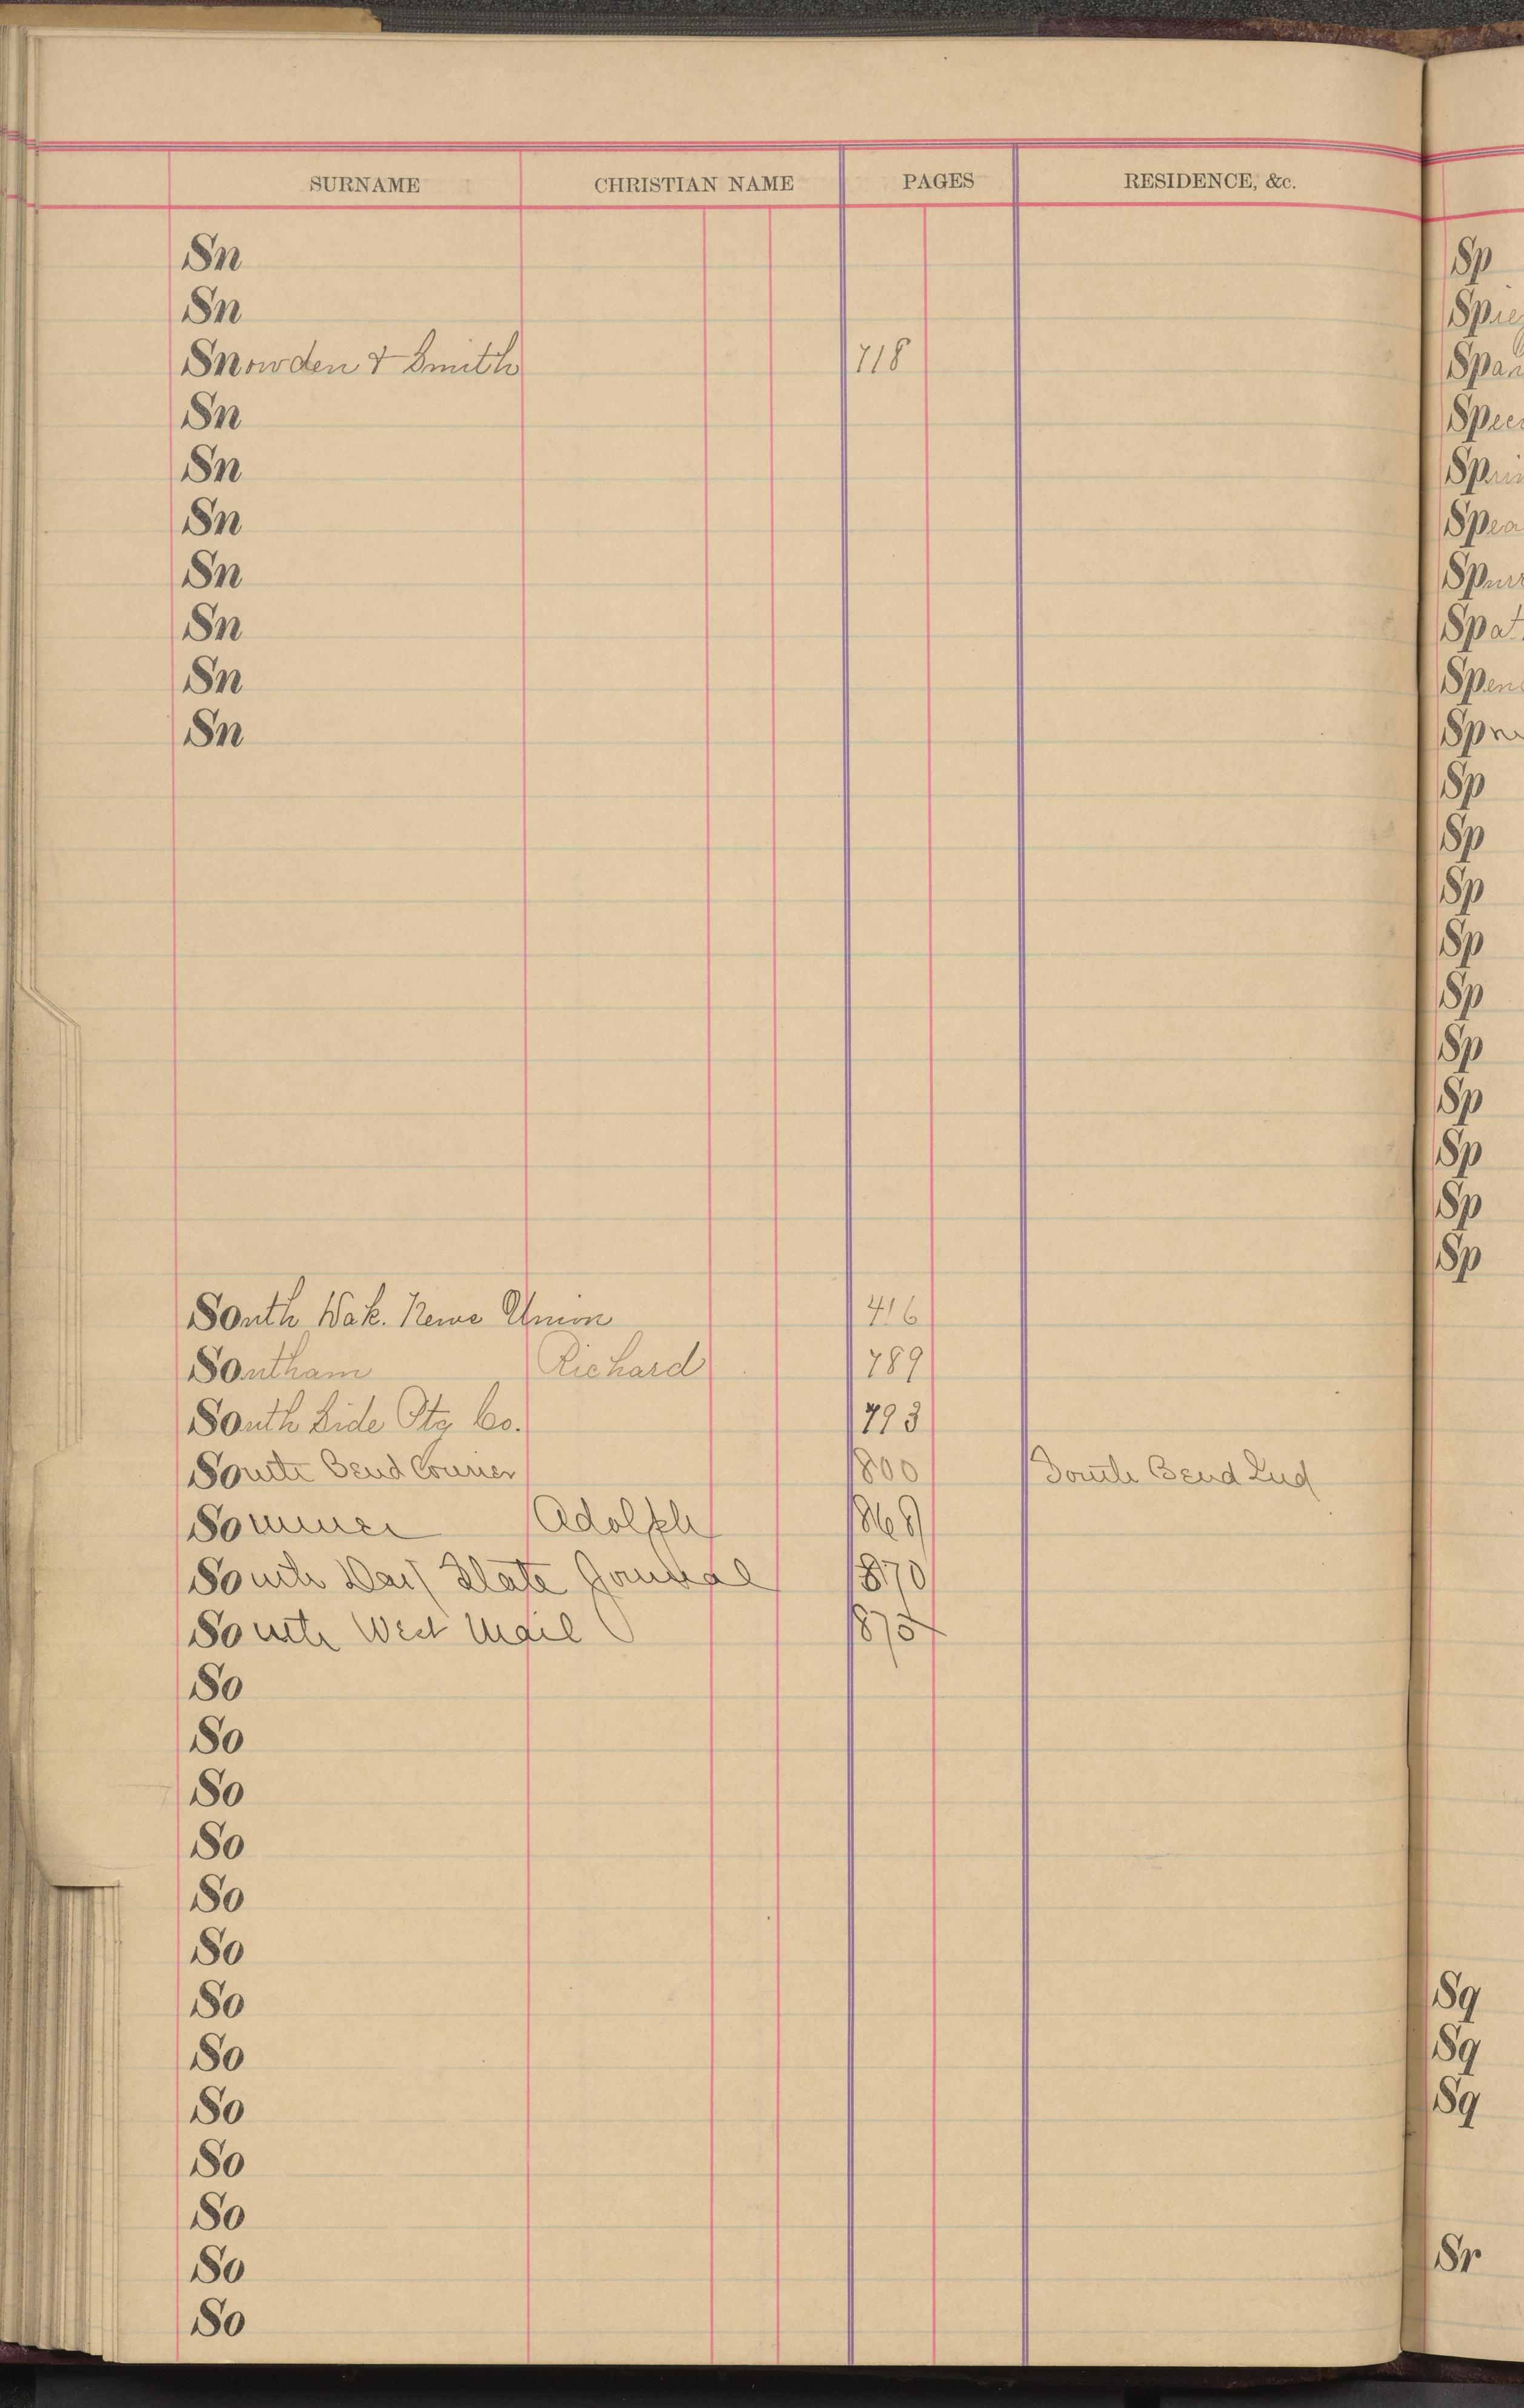 SURNAME CHRISTIAN NAME PAGES RESIDENCE, &c.
Sn
Sn
Snowden & Smith 718
Sn
Sn
Sn
Sn
Sn
Sn
Sn
South Dak. News Union 416
Southam Richard 789
South Side Ptg Co. 793
South Bend Courier 800 South Bend Ind
Sommer Adolph 868
South Dak State Journal 870
South West Mail 875
So
So
So
So
So
So
So
So
So
So
So
So
So
Sp
Spie
Spa
Spee
Spri
Spea
Spur
Spat
Spen
Sp
Sp
Sp
Sp
Sp
Sp
Sp
Sp
Sp
Sp
Sp
Sq
Sq
Sq
Sr